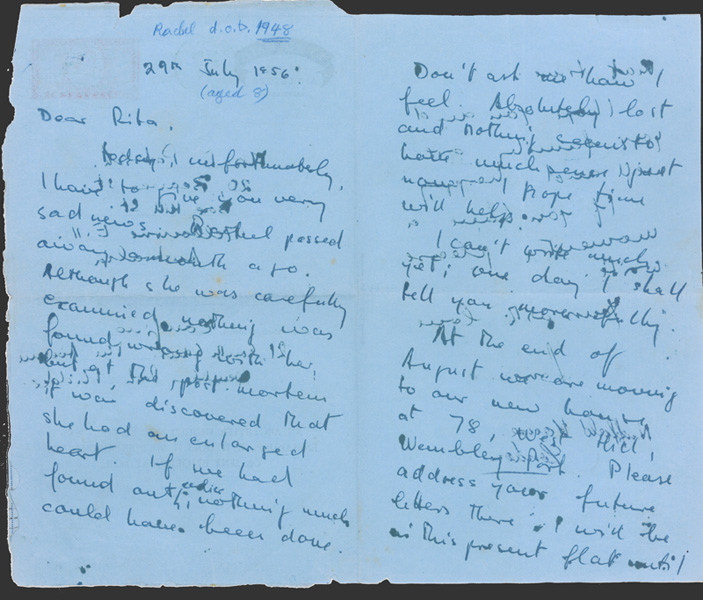 Rachel d.o.b. 1948
29th July 1956.
(aged 8)
Dear Rita,
unfortunately,
I have to give you very
sad news. Rachel passed
away a month ago.
Although she was carefully
examined nothing was
found wrong with her,
but at the post mortem
it was discovered that
she had an enlarged
heart. If we had
found out earlier, nothing much
could have been done.
Don't ask me how I
feel. Absolutely lost
and nothing seems to
have much sense just
now. I hope time
will help.
I can't write much
yet; one day I shall
tell you more fully.
At the end of
August we are moving
to our new house
at 78, Hill,
Wembley Park. Please
address your future
letters there. I will be
in this present flat until